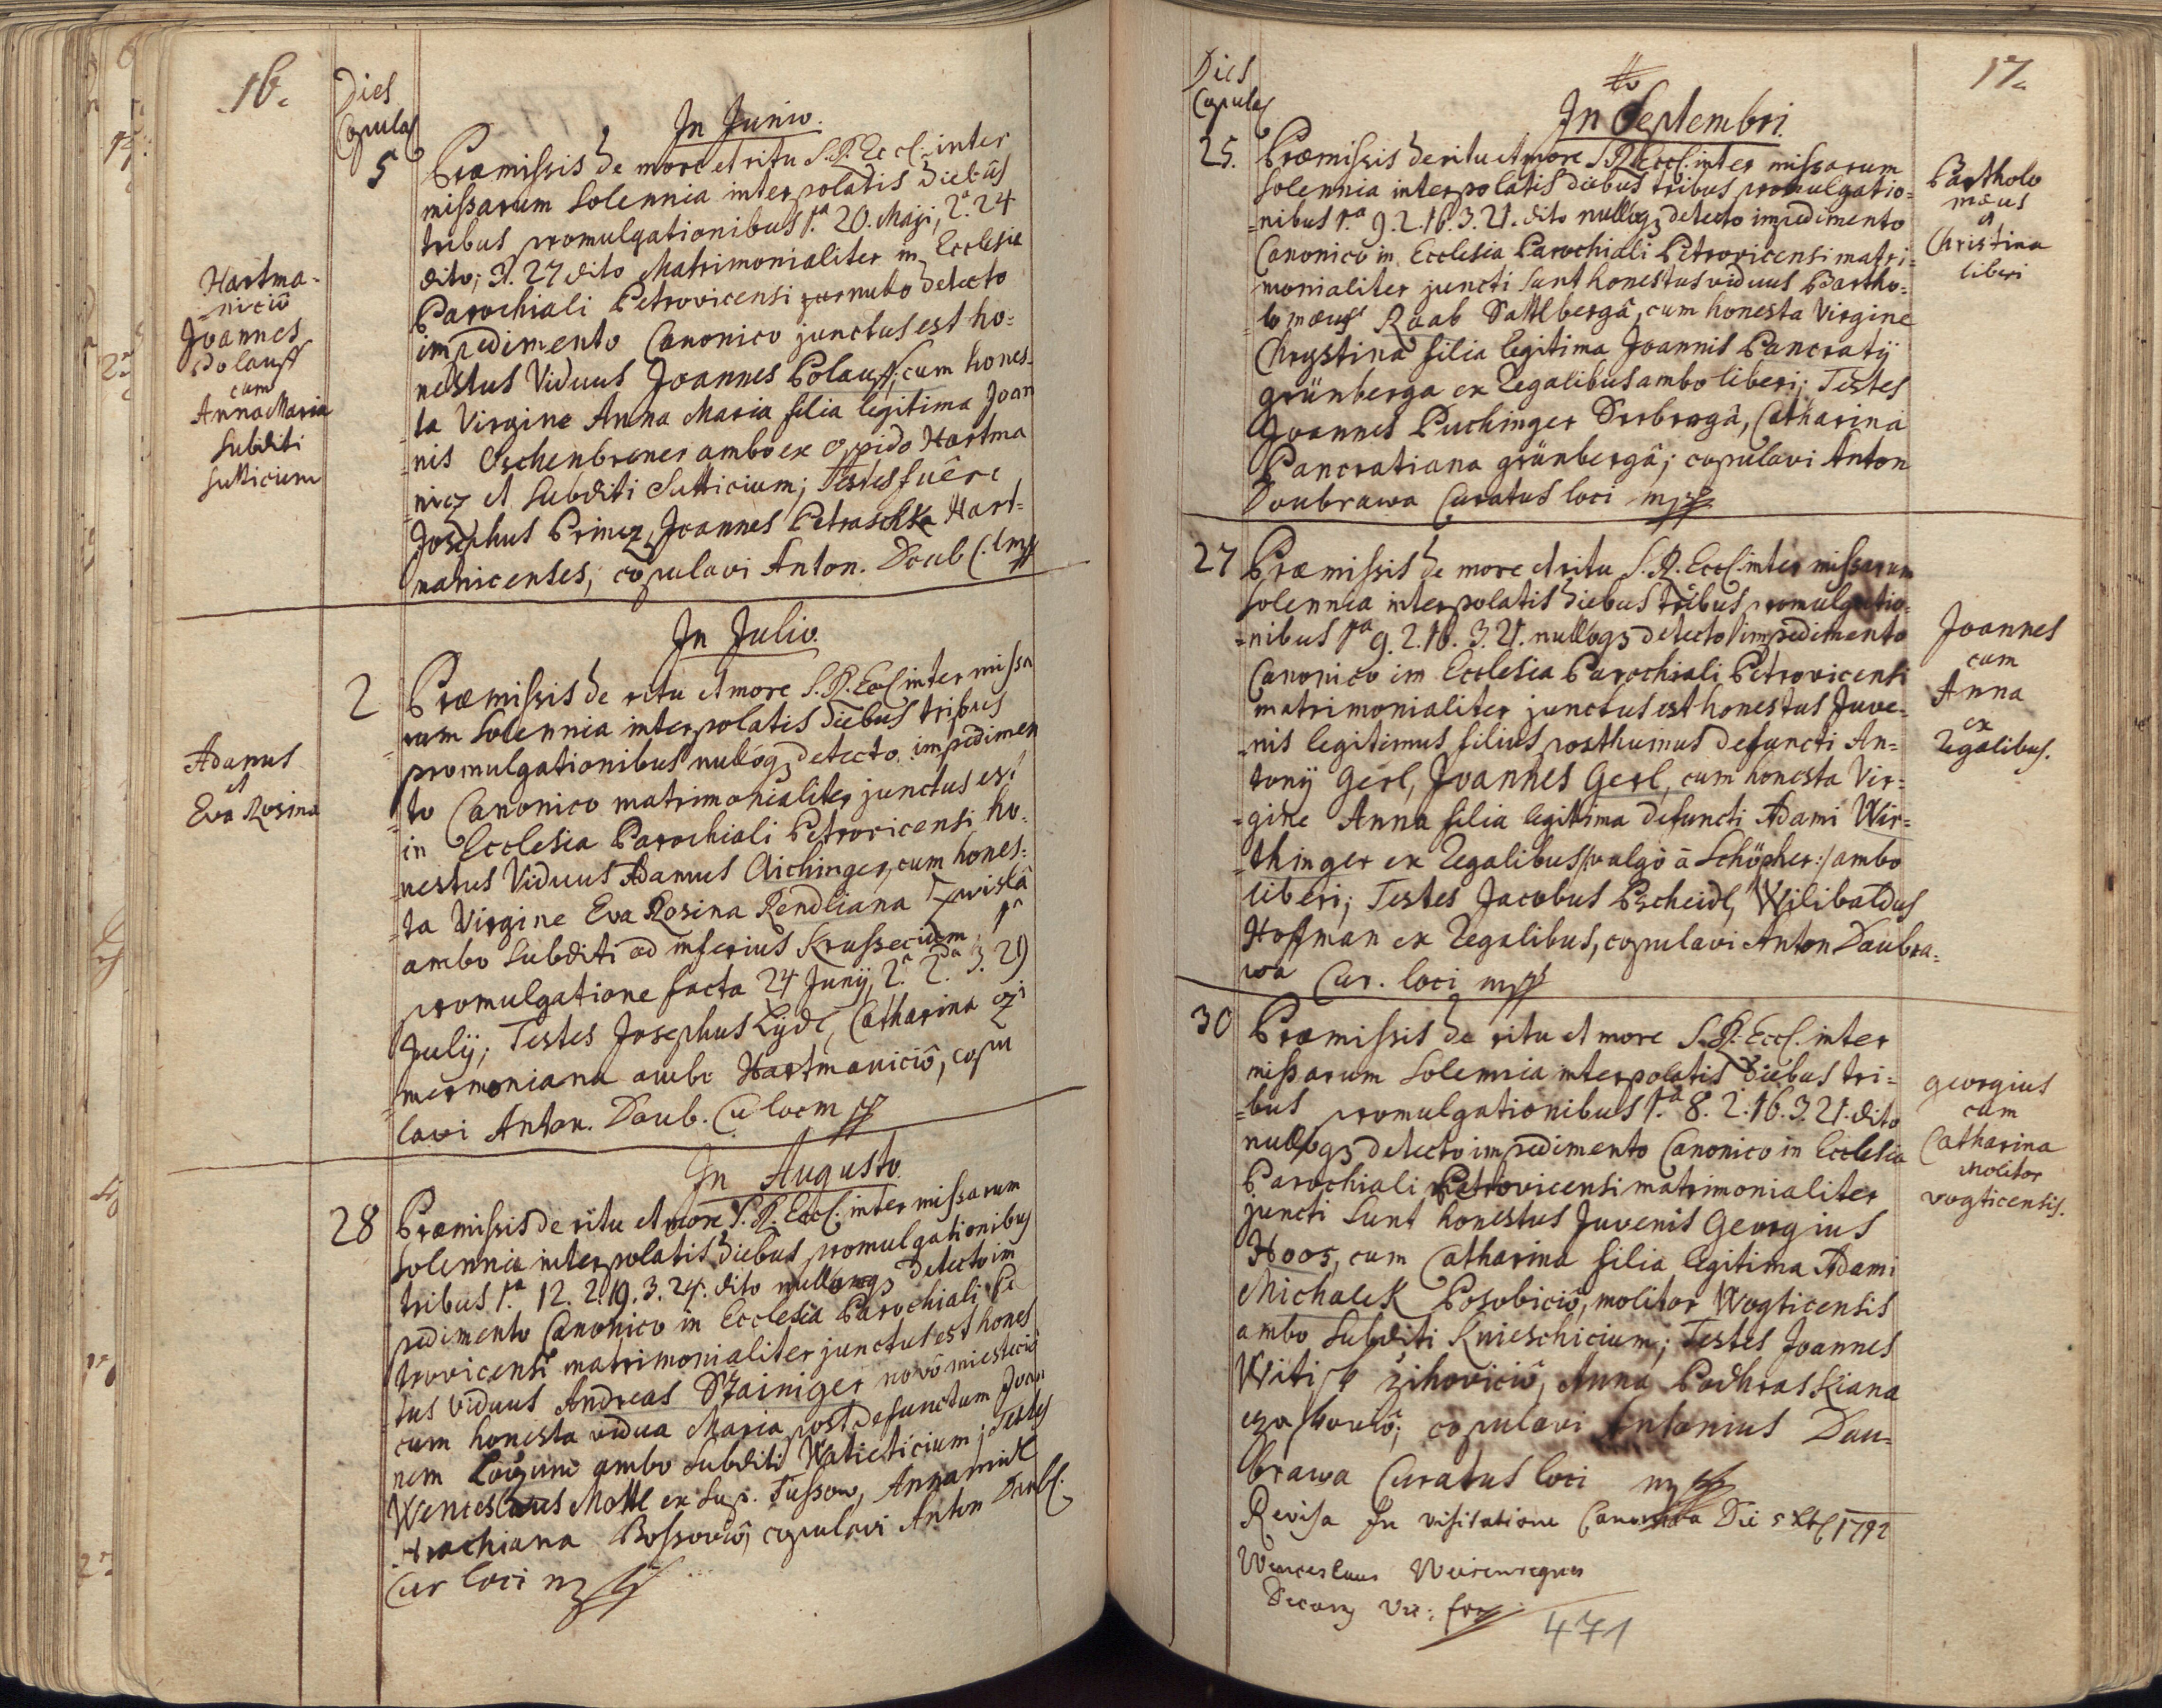 16.
Dies
Copulae
In Junio.
5
Praemissis de more et ritu S. R. Eccl. inter
missarum Solennia interpolatis diebus
tribus promulgationibus 1.a 20. Maji, 2.a 24
dito; 3. 27 dito Matrimonialiter in Ecclesia
Parochiali Petrovicensi nullo detecto
impedimento Canonico junctus est ho=
nestus Viduus Joannes Polauff, cum hones=
=ta Virgine Anna Maria filia legitima Joan
=nis Oschenbrener ambo ex oppido Hartma
=nicz et Subditi Sutticium; Testes fuere
Josephus Princz, Joannes Petraschka Hart=
manicenses, copulavi Anton. Doub C. l mpp
Hartma=
niciô
Joannes
Polauff
cum
Anna Maria
Subditi
Sutticium
In Julio.
2
Praemissis de ritu et more S. R. Eccl inter missa
=rum Solennia interpolatis diebus tribus
promulgationibus nulloq3 detecto impedimen
=to Canonico matrimonialiter junctus est
in Ecclesia Parochiali Petrovicensi ho=
nestus Viduus Adamus Aichinger, cum hones=
=ta Virgine Eva Rosina Rendliana
ambo Subditi ad inferius Krussecium, 1a
promulgatione facta 24 Junij, 2.a 2.da 3. 29
Julij; Testes Josephus Lijdl, Catharina Czi
=mermoniana ambo Hartmaniciô, copu
lavi Anton. Doub. Cu locm pp
Adamus
et
Eva Rosina
In Augusto.
28
Praemissis de ritu et more S. R. Eccl. inter missarum
Solennia interpolatis diebus promulgationibus
tribus 1.a 12. 2. 19. 3. 24. dito nulloq3 detecto im
pedimento Canonico in Ecclesia Parochiali Pe
trovicensi matrimonialiter junctus est hones
tus viduus Andreas Sztainiger novô miesteciô
cum honesta vidua Maria post defunctum Joan
nem ambo Subditi Watieticium; Testes
Wenceslaus Mottl ex Sup. Tussow, Anna
trachiana Bossoviô, copulavi Anton Daub.
Cur loci mpp
17.
Dies
Copulae
In Septembri.
25.
Praemissis de ritu et more S. R. Eccl. inter missarum
Solennia interpolatis diebus tribus promulgatio=
=nibus 1.a 9. 2. 16. 3. 21. dito nulloq3 detecto impedimento
Canonico in Ecclesia Parochiali Petrovicensi matri=
monialiter juncti sunt honestus viduus Bartho=
=lomaeus Raab Sattlbergâ, cum honesta Virgine
Chrystina filia legitima Joannis Pancratij
grünberga ex Regalibus ambo liberi; Testes
Joannes Puchinger, Catharina
Pancratiana grünbergâ; copulavi Anton
Doubrawa Curatus loci mpp
Bartholo
maeus
et
Christina
liberi
27
Praemissis de more et ritu S. R. Eccl. inter missarum
Solennia interpolatis diebus tribus promulgatio=
=nibus 1a 9. 2. 16. 3. 21. nulloq3 detecto impedimento
Canonico im Ecclesia Parochiali Petrovicensi
matrimonialiter junctus est honestus Juve=
=nis legitimus filius posthumus defuncti An=
tonij Gerl, Joannes Gerl, cum honesta Vir=
=gine Anna filia legitima defuncti Adami Wir=
=thinger ex Regalibus /:vulgò â Schöpher:/ ambo
liberi; Testes Jacobus Pscheidl, Wilibaldus
Hoffman ex Regalibus, copulavi Anton Daubra=
wa Cur. loci mpp
Joannes
cum
Anna
ex
Regalibus.
30
Praemissis de ritu et more S. R. Eccl. inter
missarum Solennia interpolatis diebus tri=
=bus promulgationibus 1.a 8. 2. 16. 3. 21. dito
nulloq3 detecto impedimento Canonico in Ecclesia
Parochiali Petrovicensi matrimonialiter
juncti sunt honestus Juvenis Georgius
Hoos, cum Catharina filia legitima Adami
Michalek Posobiciô, molitor Wogticensis
ambo Subditi Knieschicium; Testes Joannes
žihoviciô, Anna Podhraskiana
copulavi Antonius Dau=
brawa Curatus loci mpp
georgius
cum
Catharina
Molitor
vogticensis.
Revisa In visitatione Canonica Die 5 1792
Wenceslaus
471